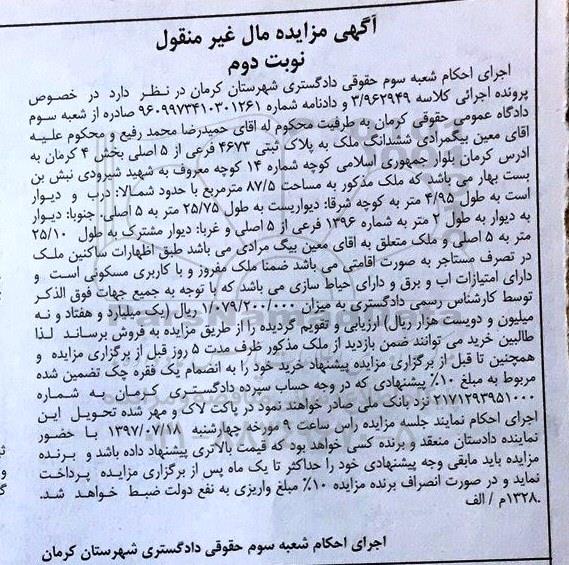 آگهی مزایده مال غیر منقول
نوبت دوم
اجرای احکام شعبه سوم حقوقی دادگستری شهرستان کرمان در نظر دارد در خصوص
پرونده اجرائی کلاسه ۳/۹۶۲۹۴۹ و دادنامه شماره ۹۶۰۹۹۷۳۴۱۰۳۰۱۲۶۱ صادره از شعبه سوم
دادگاه عمومی حقوقی کرمان به طرفیت محکوم له اقای حمیدرضا محمد رفیع و محکوم علیه
اقای معین بیگمرادی ششدانگ ملک به پلاک ثبتی ۴۶۷۳ فرعی از ۵ اصلی بخش ۴ کرمان به
ادرس کرمان بلوار جمهوری اسلامی کوچه شماره ۱۴ کوچه معروف به شهید شیرودی نبش بن
بست بهار می باشد که ملک مذکور به مساحت ۸۷/۵ مترمربع با حدود شمالا: درب و دیوار
است به طول ۴/۹۵ متر به کوچه شرقا: دیواریست به طول ۲۵/۷۵ متر به ۵ اصلی. جنوبا: دیوار
به دیوار به طول ۲ متر به شماره ۱۳۹۶ فرعی از ۵ اصلی و غربا: دیوار مشترک به طول ۲۵/۱۰
متر به ۵ اصلی و ملک متعلق به اقای معین بیگ مرادی می باشد طبق اظهارات ساکنین ملک
در تصرف مستاجر به صورت اقامتی می باشد ضمنا ملک مفروز و با کاربری مسکونی است و
دارای امتیازات اب و برق و دارای حیاط سازی می باشد که با توجه به جمیع جهات فوق الذکر
توسط کارشناس رسمی دادگستری به میزان ۱/۰۷۹/۲۰۰/۰۰۰ ریال (یک میلیارد و هفتاد و نه
میلیون و دویست هزار ریال) ارزیابی و تقویم گردیده را از طریق مزایده به فروش برساند لذا
طالبین خرید می توانند ضمن بازدید از ملک مذکور ظرف مدت ۵ روز قبل از برگزاری مزایده و
همچنین تا قبل از برگزاری مزایده پیشنهاد خرید خود را به انضمام یک فقره چک تضمین شده
مربوط به مبلغ ۱۰٪ پیشنهادی که در وجه حساب سپرده دادگستری کرمان به شماره
۲۱۷۱۲۹۳۹۵۱۰۰۰ نزد بانک ملی صادر خواهند نمود در پاکت لاک و مهر شده تحویل این
اجرای احکام نمایند جلسه مزایده راس ساعت ۹ مورخه چهارشنبه ۱۳۹۷/۰۷/۱۸ با حضور
نماینده دادستان منعقد و برنده کسی خواهد بود که قیمت بالاتری پیشنهاد داده باشد و برنده
مزایده باید مابقی وجه پیشنهادی خود را حداکثر تا یک ماه پس از برگزاری مزایده پرداخت
نماید و در صورت انصراف برنده مزایده ۱۰٪ مبلغ واریزی به نفع دولت ضبط خواهد شد.
۱۳۲۸.م / الف
اجرای احکام شعبه سوم حقوقی دادگستری شهرستان کرمان